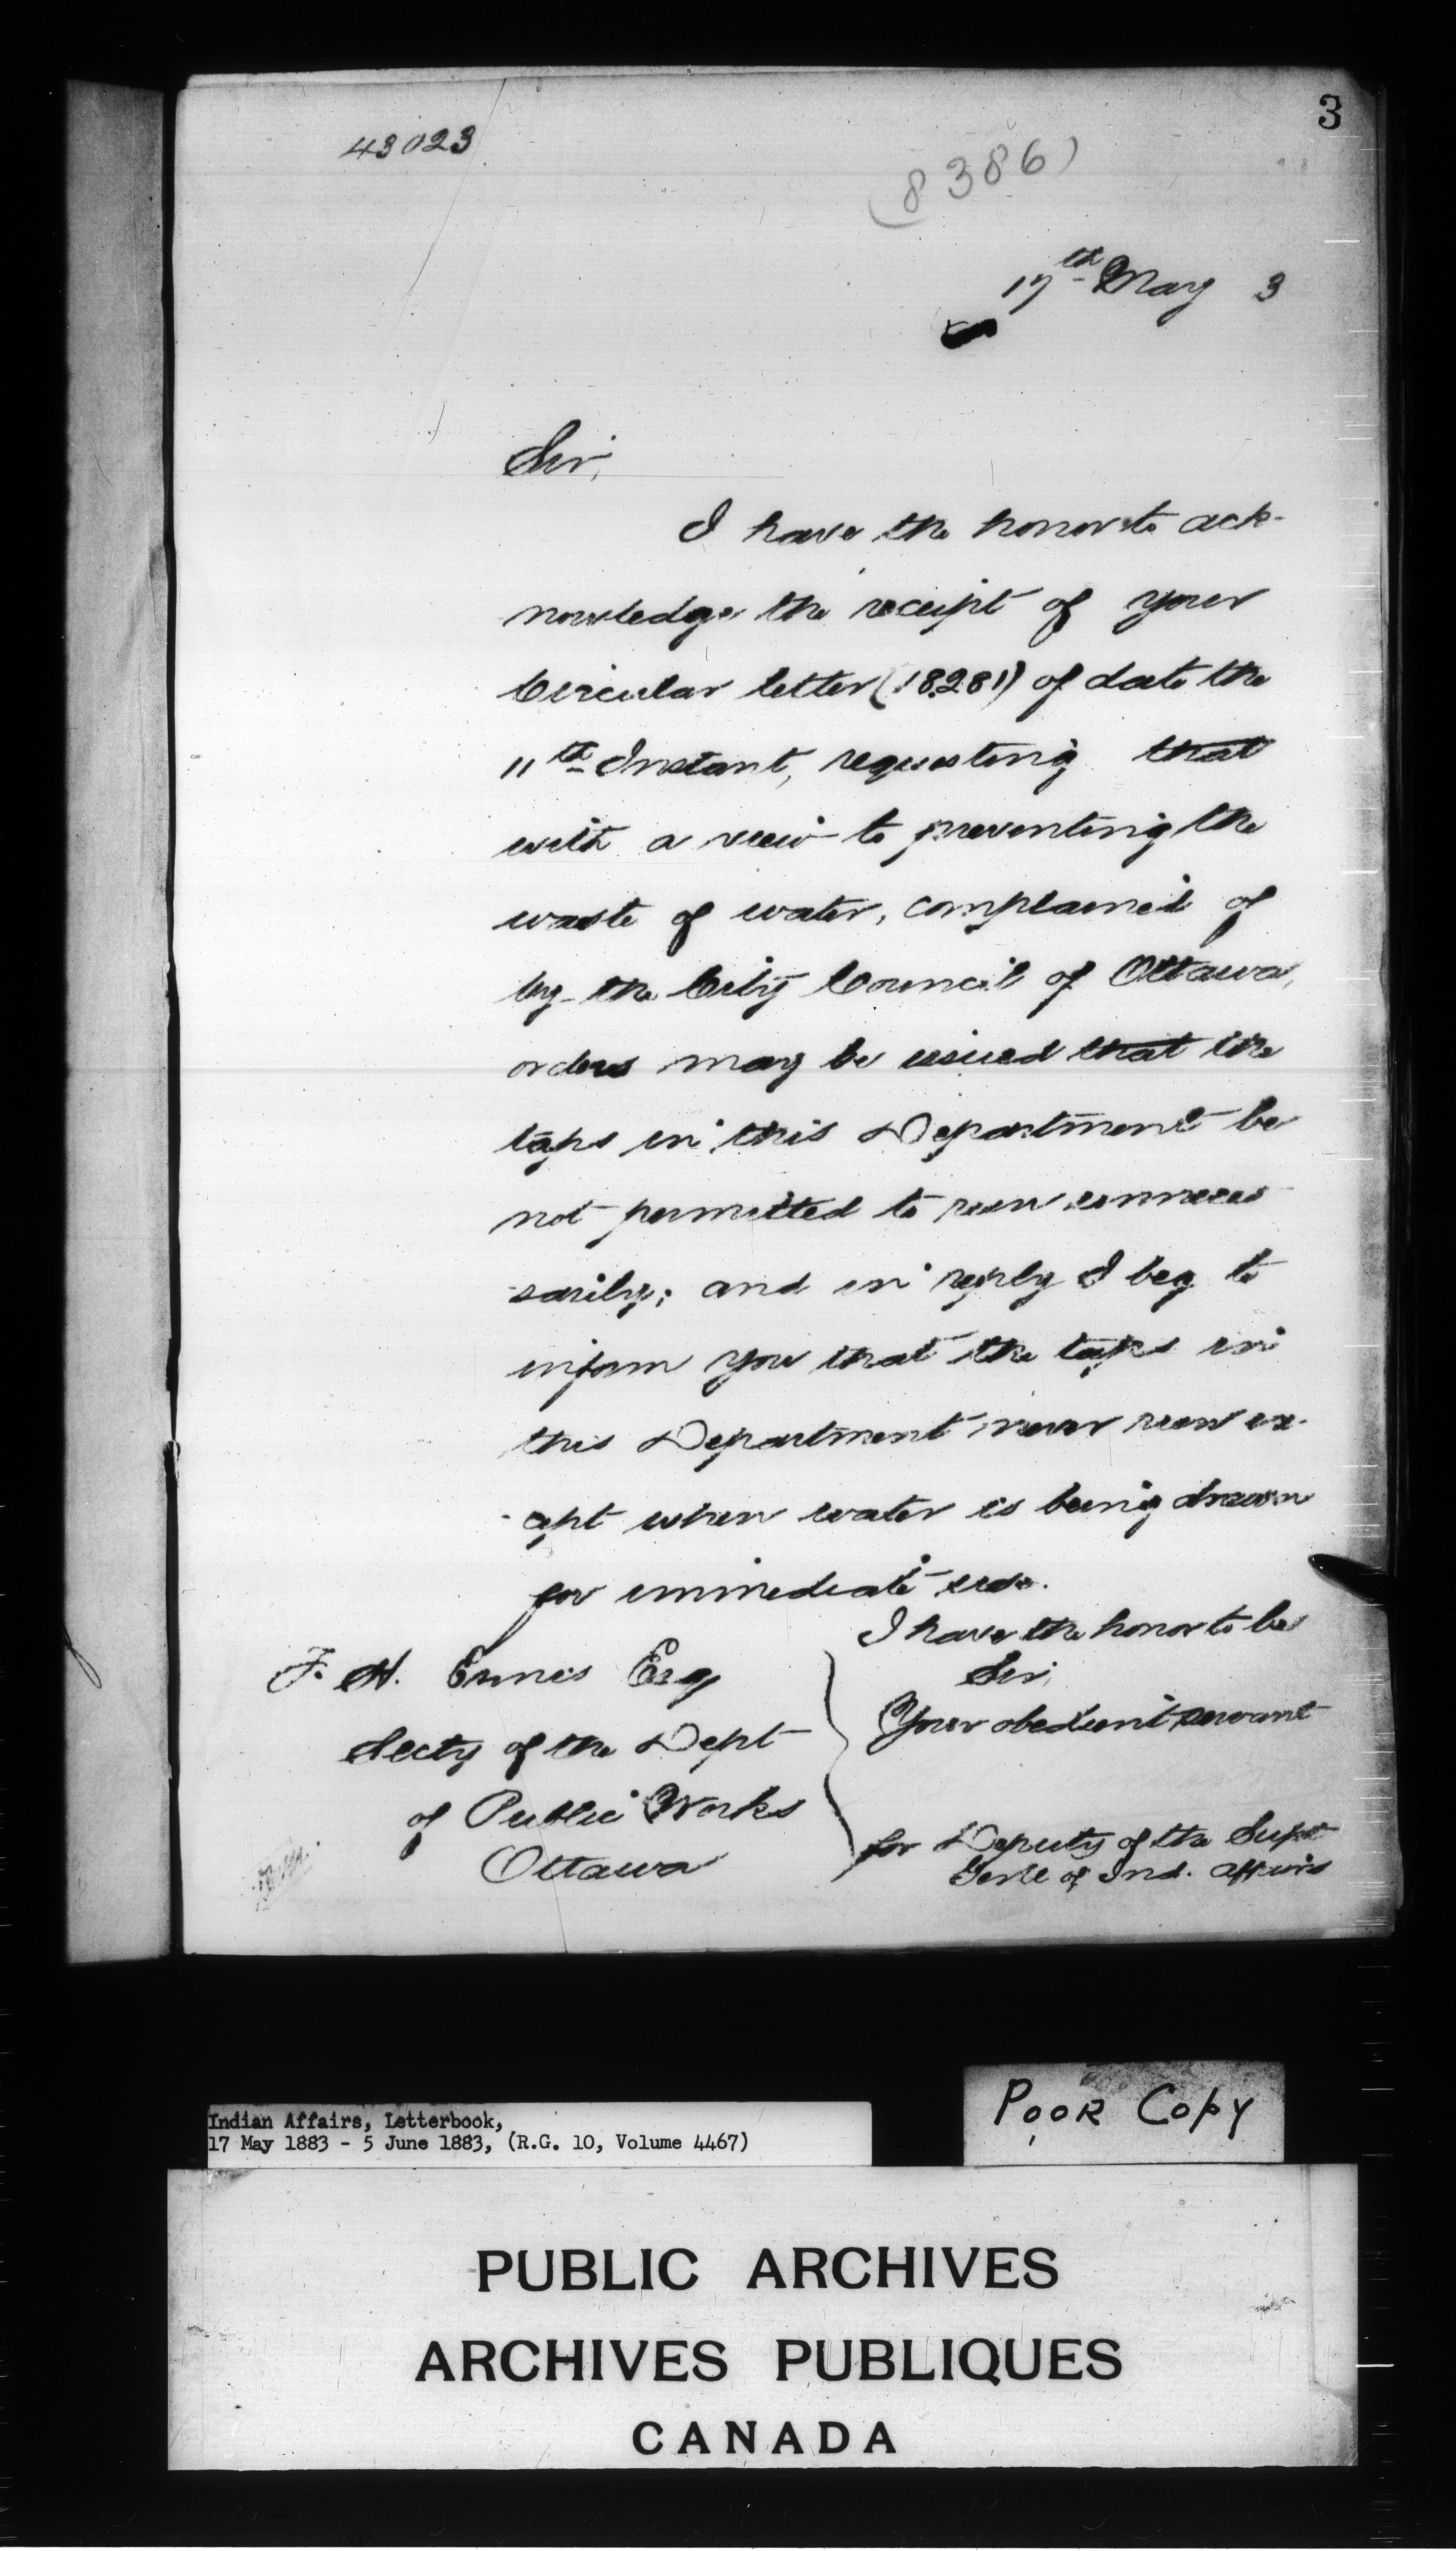 3
43023
(8386)
17th May 3
Sir,
I have the honor to ack-
nowledge the receipt of your
Circular letter (18281) of date the
11th Instant, requesting that
with a view to preventing the
waste of water, complained of
by the City Council of Ottawa,
orders may be issued that the
taps in this Department be
not permitted to run unneces
sarily; and in reply I beg to
inform you that the taps in
this Department never run ex-
cept when water is being drawn
for immediate use.
I have the honor to be
Sir,
Your obedient servant
F. H. Ennis Esq
Secty of the Dept
of Public Works
Ottawa
for Deputy of the Supt
Genl of Ind. Affairs
Poor Copy
Indian Affairs, Letterbook,
17 May 1883 - 5 June 1883, (R.G. 10, Volume 4467)
PUBLIC ARCHIVES
ARCHIVES PUBLIQUES
CANADA